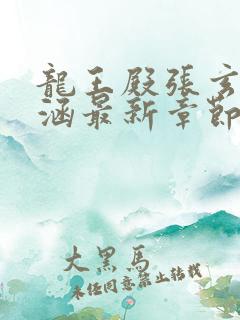 龍王殿張玄
涵最新章節
大黑馬
未经同意禁止转载